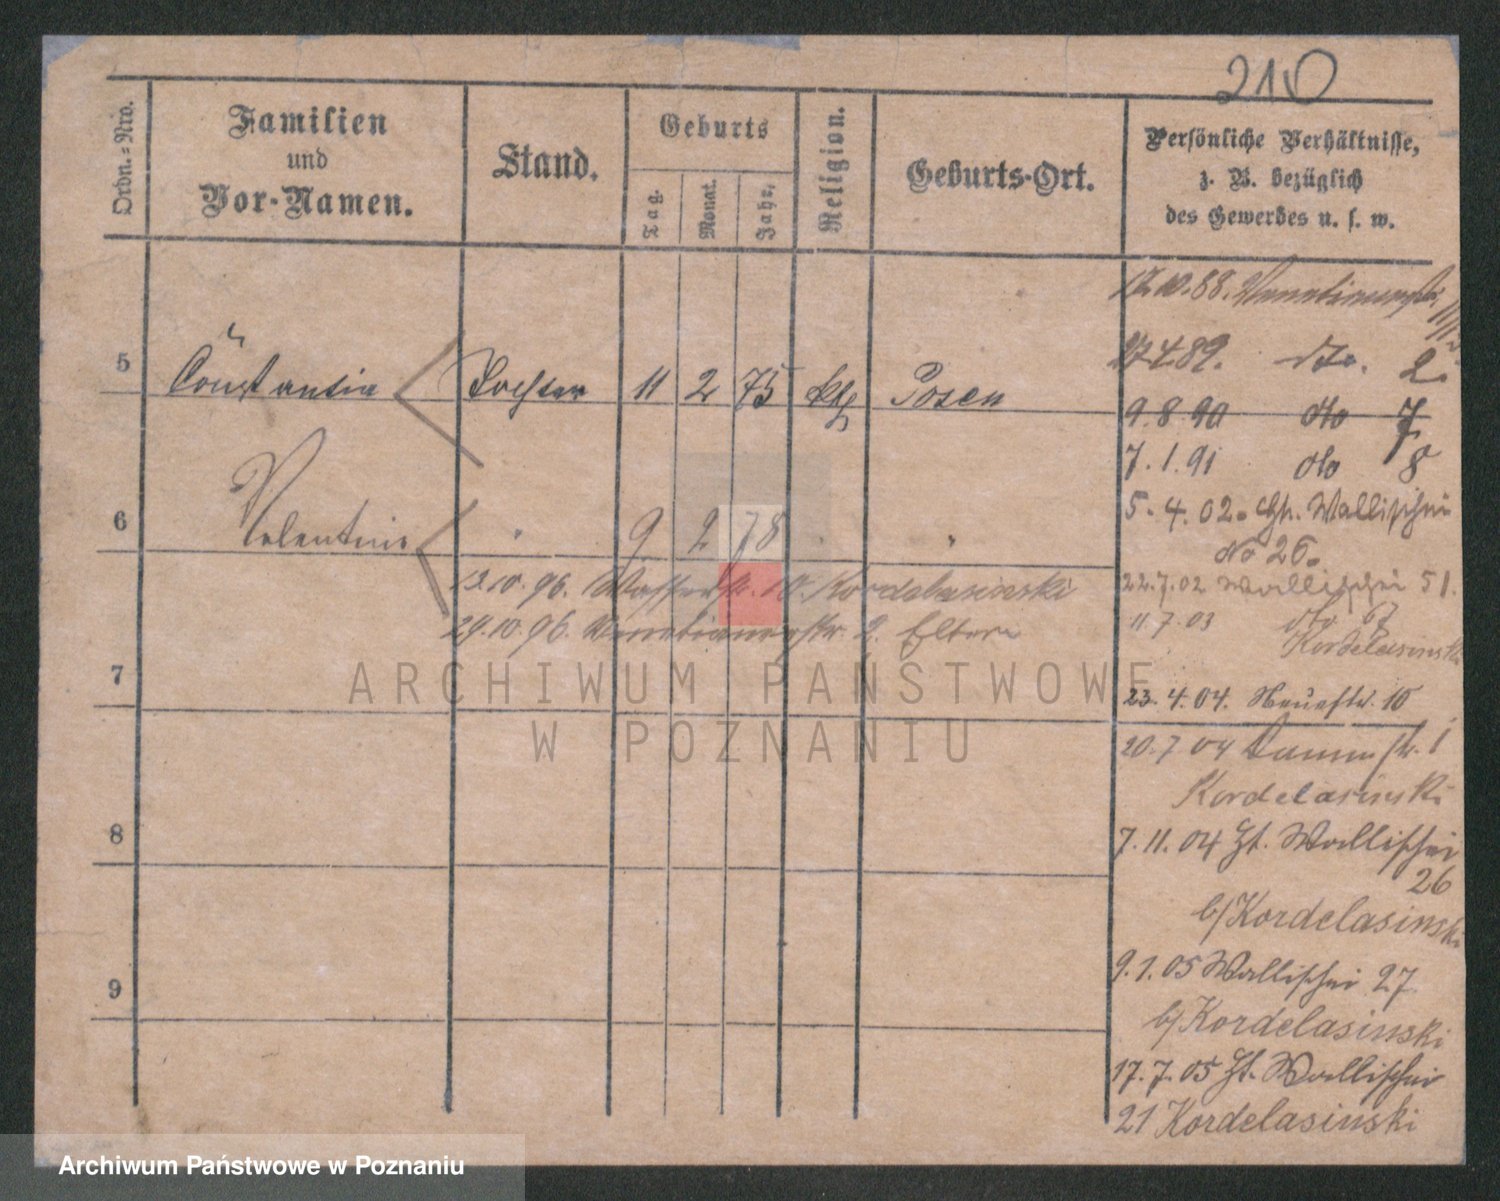 210
Ordn.-Nro.
Familien
und
Vor-Namen.
Stand.
Geburts
Tag.
Monat.
Jahr.
Religion.
Geburts-Ort.
Persönliche Verhältnisse,
z. B. bezüglich
des Gewerbes u. s. w.
17.10.88. Venetianerstr.
27.4.89. dto. 2.
5 Constantia Tochter 11 2 75 kth Posen
9.8.90 dto 7
7.1.91 dto 8
5.4.02. Wallischei
No 26.
6 Valentine " 9 2 78 " "
13.10.96. Wasserstr. 10. Kordelasinski
22.7.02 Wallischei 51.
29.10.96. Venetianerstr. 2. Eltern
11.7.03 dto 67
Kordelasinski
7
23.4.04. Neuestr. 10
20.7.04 Dammstr. 1
Kordelasinski
8
7.11.04 Ht. Wallischei
26
b/Kordelasinski
9.1.05 Wallischei 27
9
b/Kordelasinski
17.7.05 Ht. Wallischei
21 Kordelasinski
ARCHIWUM PAŃSTWOWE
W POZNANIU
Archiwum Państwowe w Poznaniu